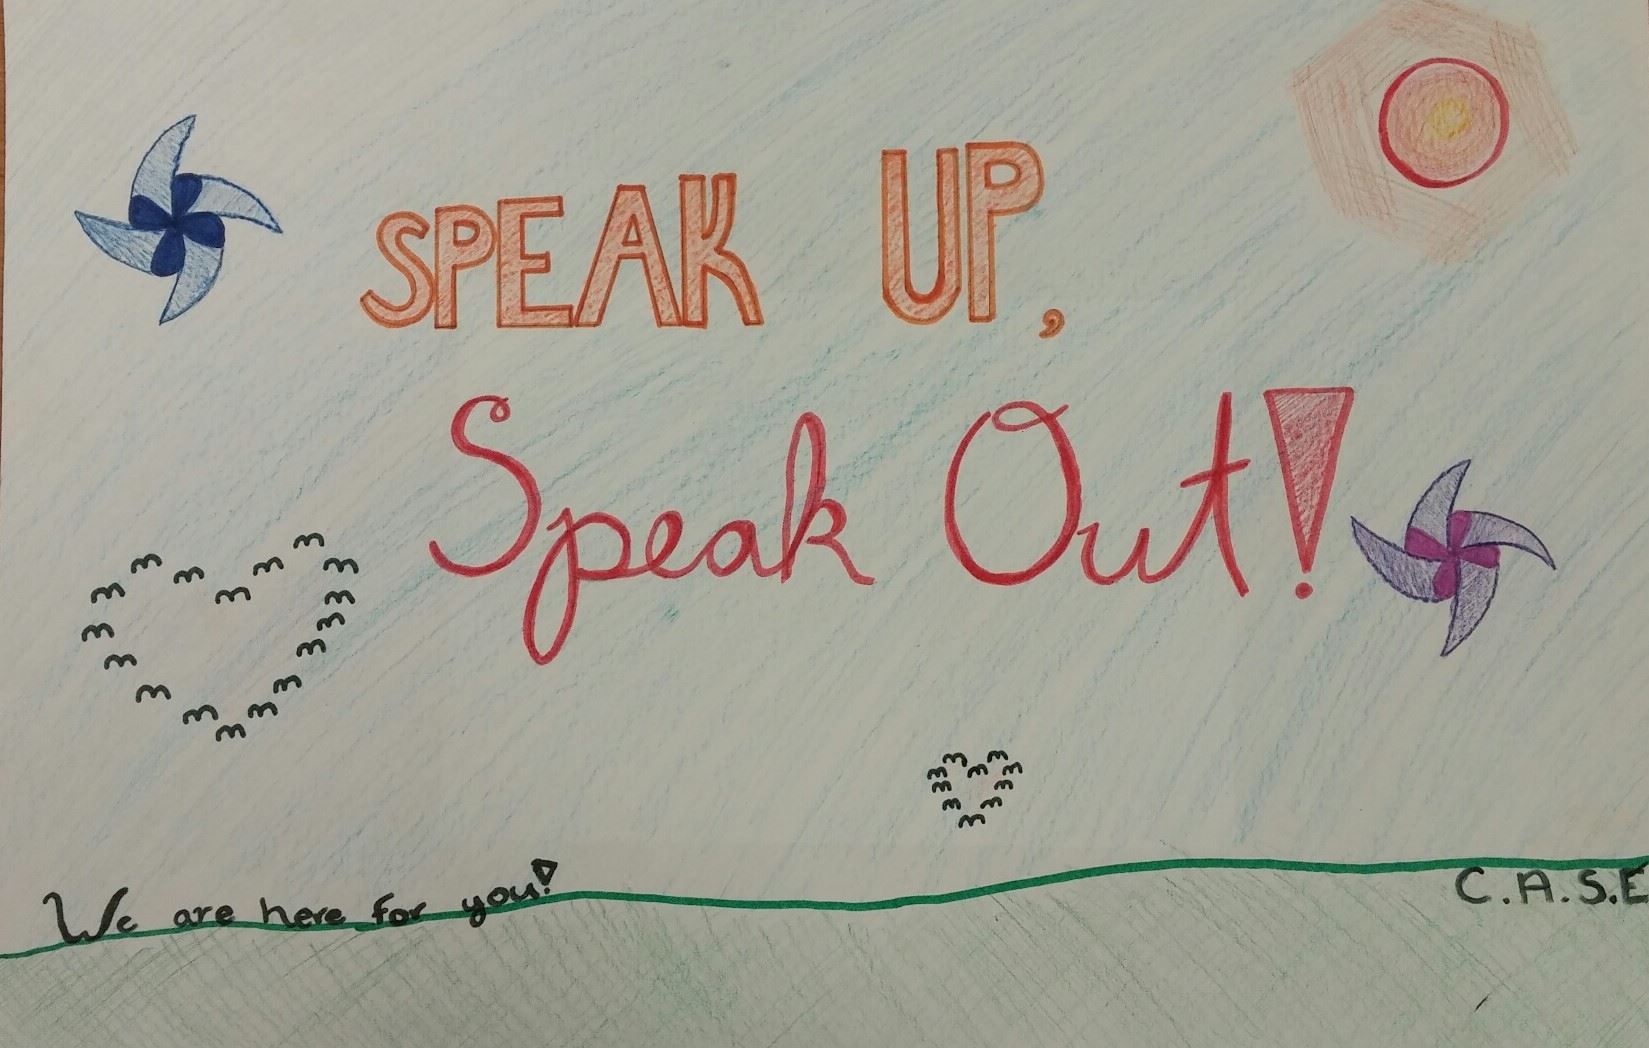 SPEAK UP,
Speak Out!
We are here for you!
C.A.S.E